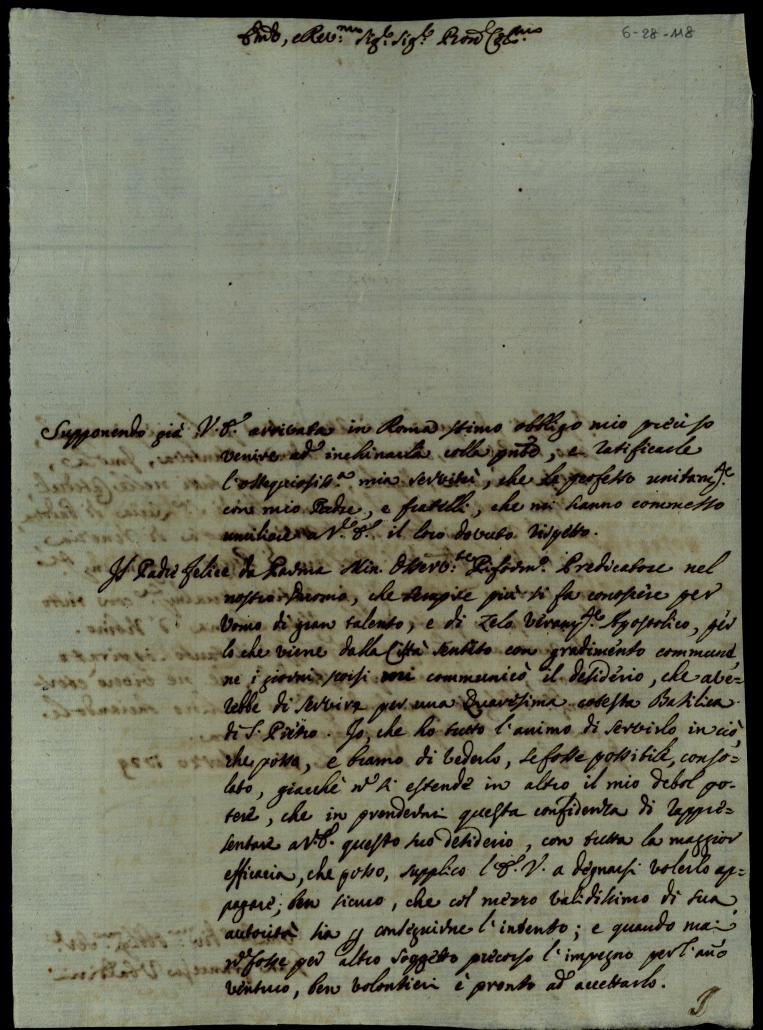 Em̃o, e Rev:mo Sig.r Sig.r Pron̄ Col:mo
6-28-118
Supponendo già V. E.ª arrivata in Roma stimo obbligo mio preciso
venire ad inchinarla colla pñte, e ratificarle
l'ossequiosiss.ª mia servitù, che la professo unitam.te
con mio Padre, e fratelli, che mi hanno commesso
umiliare a V.ª E.ª il loro dovuto rispetto.
Il Padre Felice da Padova Min. Osserv:te Riform.º Predicatore nel
nostro Duomo, che sempre più si fa conoscere per
Uomo di gran talento, e di Zelo veram.te Apostolico, per
lo che viene dalla Città sentito con gradimento commune
ne i giorni scorsi mi communicò il desiderio, che ave-
rebbe di servire per una Quaresima cotesta Basilica
di S. Pietro. Io, che ho tutto l'animo di servirlo in ciò
che posso, e bramo di vederlo, se fosse possibile, conso-
lato, giacchè nō si estende in altro il mio debol po-
tere, che in prendermi questa confidenza di rappre-
sentare a V.ª E.ª questo suo desiderio, con tutta la maggior
efficacia, che posso, supplico l'E.ª V. a degnarsi volerlo ap-
pagare; ben sicuro, che col mezzo validissimo di sua
autorità sia p conseguirne l'intento; e quando mai
nō fosse per altro soggetto precorso l'impegno per l'año
venturo, ben volontieri è pronto ad accettarlo.